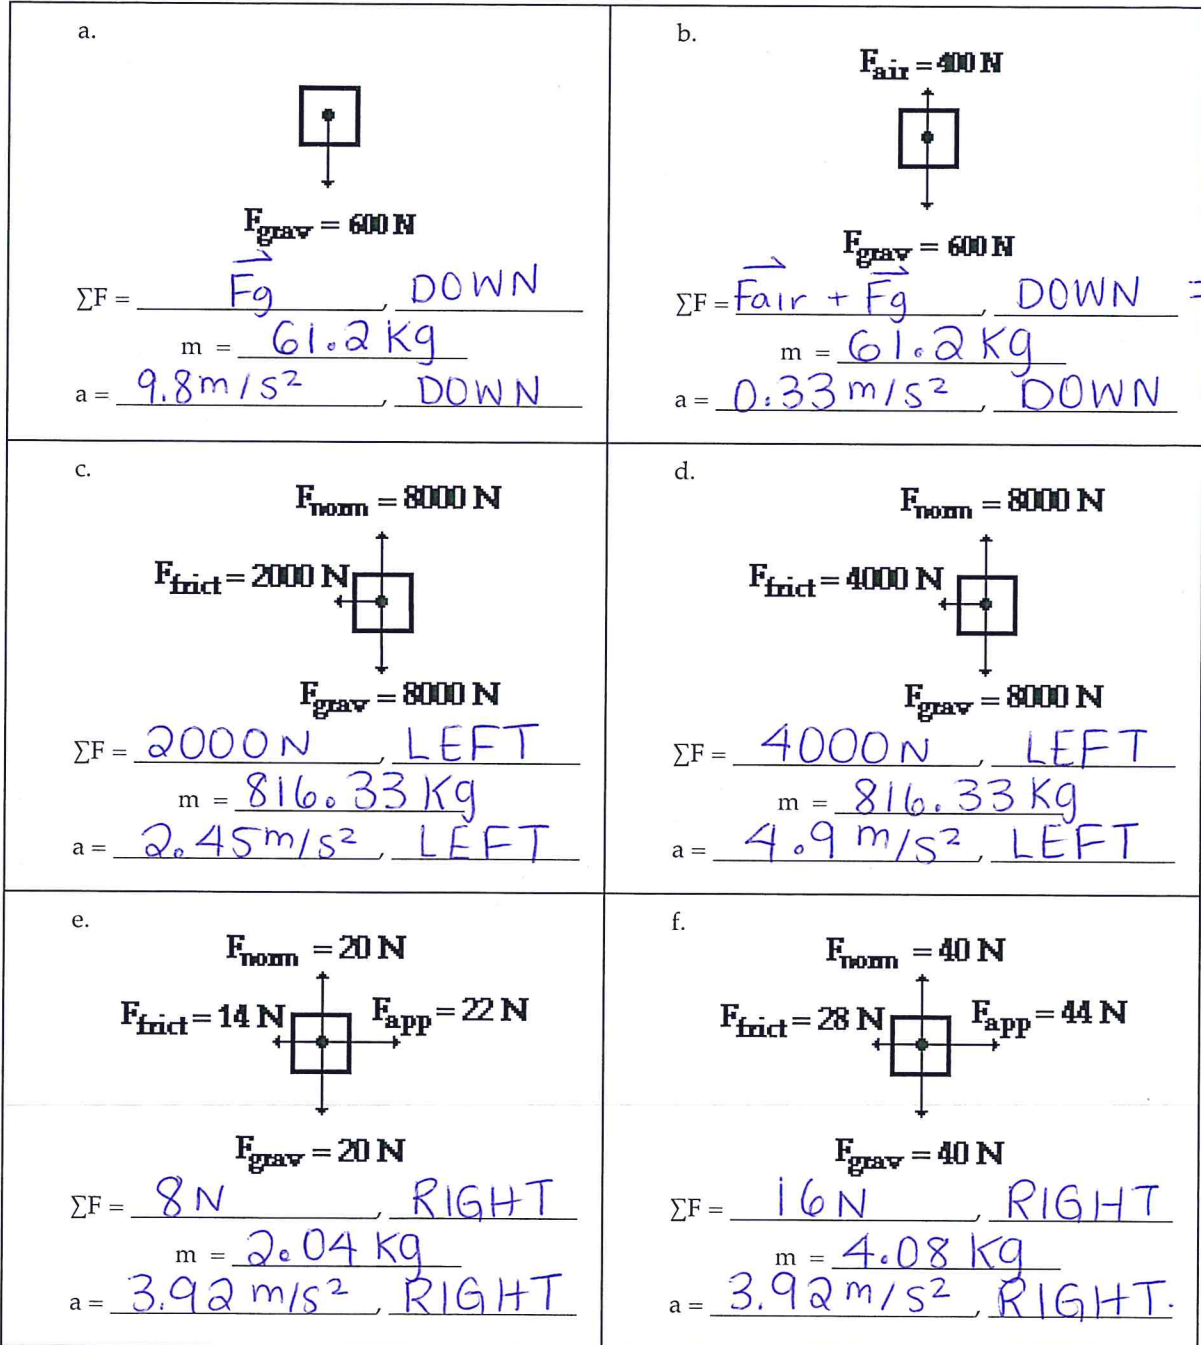 a.
F_grav = 600 N
ΣF = Fg, DOWN
m = 61.2 Kg
a = 9.8 m/s², DOWN
b.
F_air = 400 N
F_grav = 600 N
ΣF = Fair + Fg, DOWN =
m = 61.2 Kg
a = 0.33 m/s², DOWN
c.
F_norm = 8000 N
F_frict = 2000 N
F_grav = 8000 N
ΣF = 2000 N, LEFT
m = 816.33 Kg
a = 2.45 m/s², LEFT
d.
F_norm = 8000 N
F_frict = 4000 N
F_grav = 8000 N
ΣF = 4000 N, LEFT
m = 816.33 Kg
a = 4.9 m/s², LEFT
e.
F_norm = 20 N
F_frict = 14 N F_app = 22 N
F_grav = 20 N
ΣF = 8 N, RIGHT
m = 2.04 Kg
a = 3.92 m/s², RIGHT
f.
F_norm = 40 N
F_frict = 28 N F_app = 44 N
F_grav = 40 N
ΣF = 16 N, RIGHT
m = 4.08 Kg
a = 3.92 m/s², RIGHT.